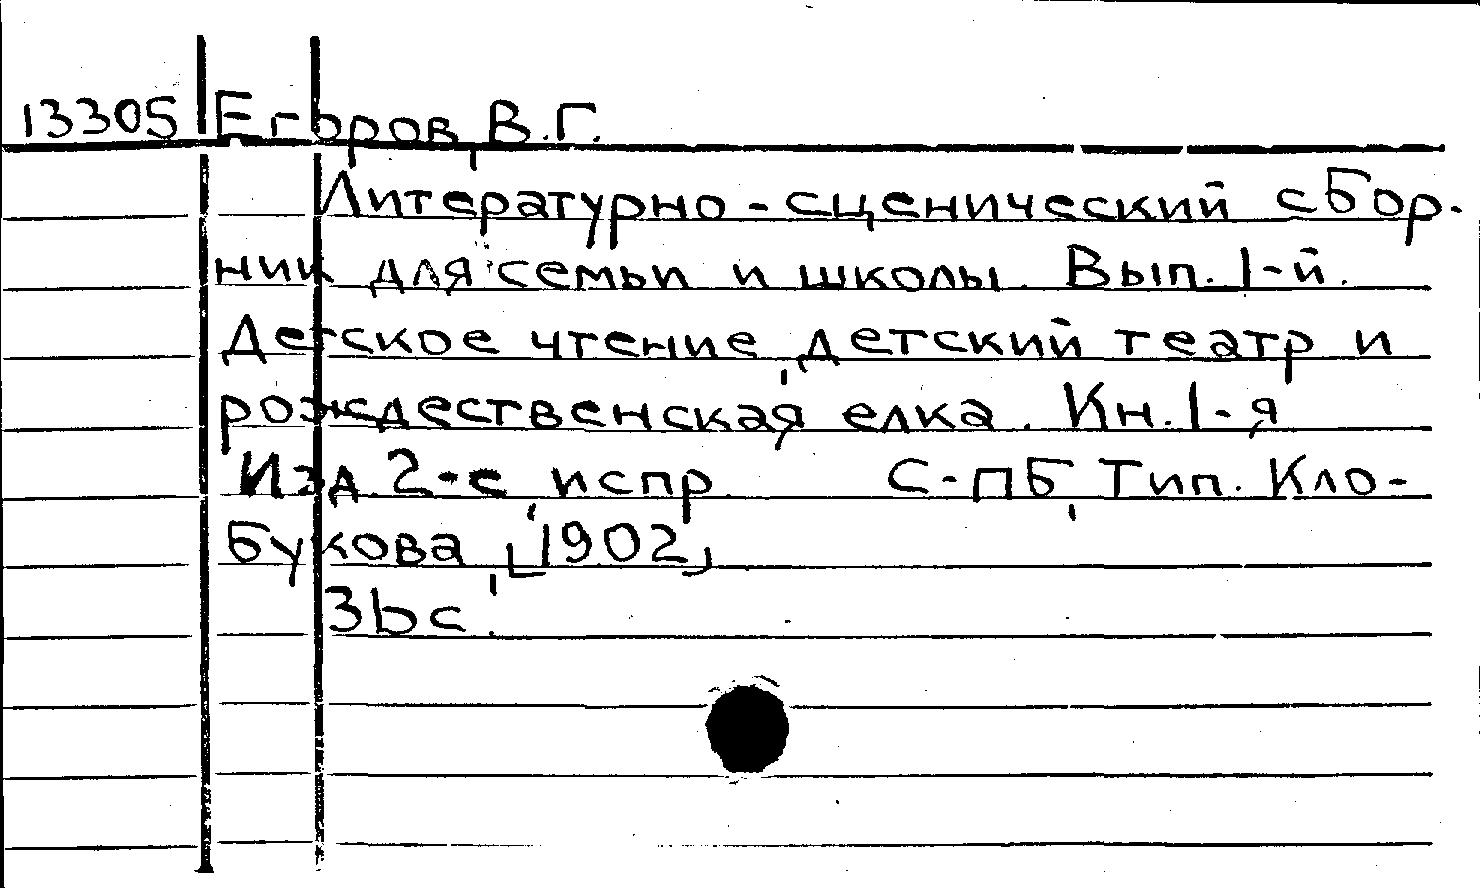 13305 Егоров, В.Г.
Литературно-сценический сбор-
ник для семьи и школы. Вып. 1-й.
Детское чтение, детский театр и
рождественская елка. Кн. 1-я
Изд. 2-е, испр. С-ПБ, Тип. Кло-
букова, [1902]
36 с.